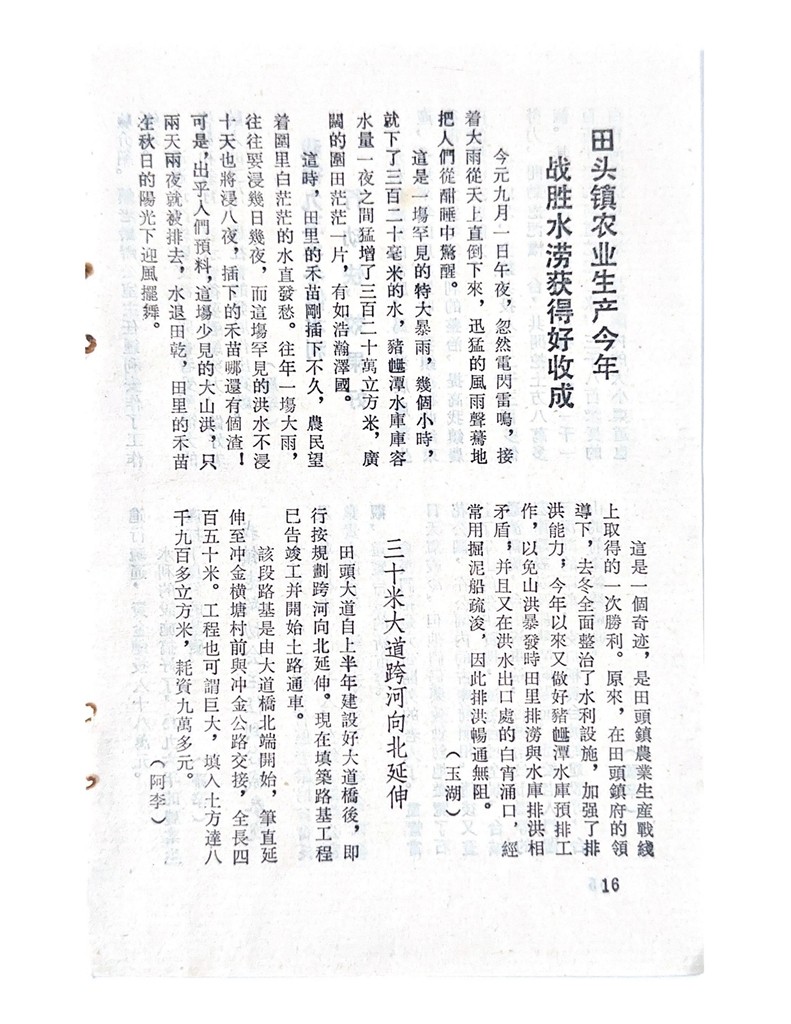 田头镇农业生产今年
战胜水涝获得好收成
今元九月一日午夜，忽然電閃雷鳴，接
着大雨從天上直倒下來，迅猛的風雨聲驀地
把人們從酣睡中驚醒。
這是一塲罕見的特大暴雨，幾個小時，
就下了三百二十毫米的水，豬乸潭水庫庫容
水量一夜之間猛增了三百二十萬立方米，廣
闊的圍田茫茫一片，有如浩瀚澤國。
這時，田里的禾苗剛插下不久，農民望
着圍里白茫茫的水直發愁。往年一塲大雨，
往往要浸幾日幾夜，而這塲罕見的洪水不浸
十天也將浸八夜，插下的禾苗哪還有個渣！
可是，出乎人們預料，這塲少見的大山洪，只
兩天兩夜就被排去，水退田乾，田里的禾苗
在秋日的陽光下迎風擺舞。
這是一個奇迹，是田頭鎮農業生產戰綫
上取得的一次勝利。原來，在田頭鎮府的領
導下，去冬全面整治了水利設施，加强了排
洪能力，今年以來又做好豬乸潭水庫預排工
作，以免山洪暴發時田里排澇與水庫排洪相
矛盾，并且又在洪水出口處的白宵涌口，經
常用掘泥船疏浚，因此排洪暢通無阻。
（玉湖）
三十米大道跨河向北延伸
田頭大道自上半年建設好大道橋後，即
行按規劃跨河向北延伸。現在填築路基工程
已告竣工并開始土路通車。
該段路基是由大道橋北端開始，筆直延
伸至冲金橫塘村前與冲金公路交接，全長四
百五十米。工程也可謂巨大，填入土方達八
千九百多立方米，耗資九萬多元。
（阿李）
16